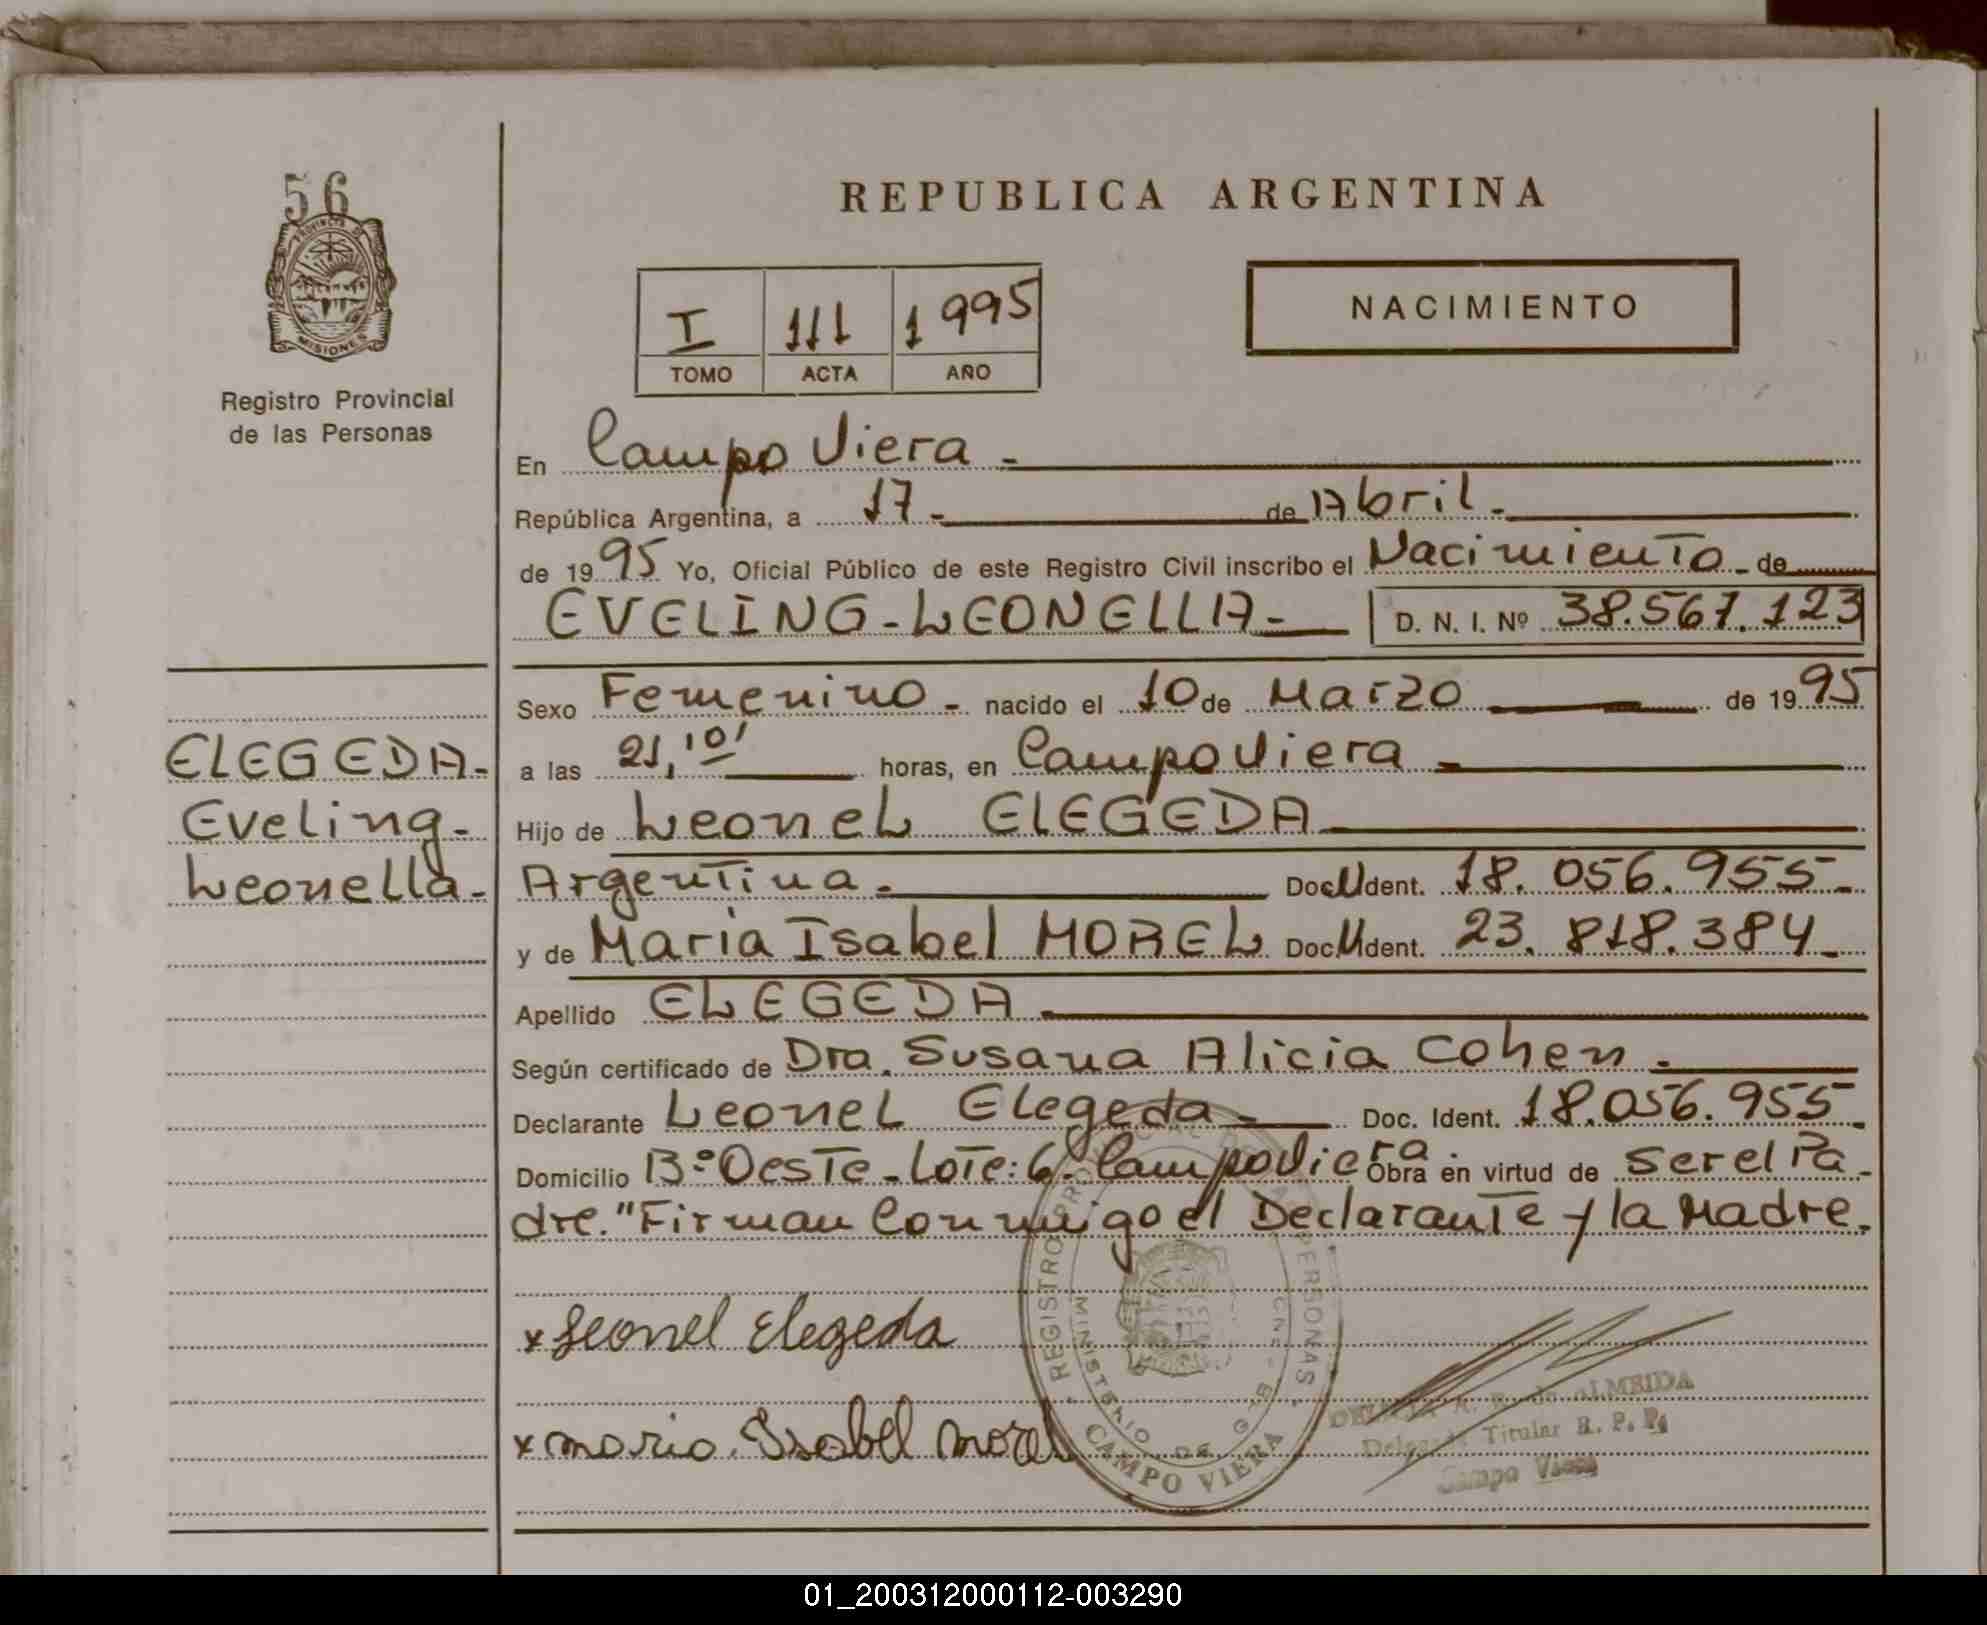 56
PROVINCIA DE
MISIONES
Registro Provincial
de las Personas
ELEGEDA-
Eveling-
Leonella-
REPUBLICA ARGENTINA
I 111 1995
TOMO ACTA AÑO
NACIMIENTO
En Campo Viera-
República Argentina, a 17- de Abril-
de 1995 Yo, Oficial Público de este Registro Civil inscribo el Nacimiento- de
EVELING-LEONELLA- D. N. I. Nº 38.567.123
Sexo Femenino- nacido el 10 de Marzo de 1995
a las 21,10' horas, en Campo Viera-
Hijo de Leonel ELEGEDA
Argentina- Doc. Ident. 18.056.955-
y de Maria Isabel MOREL Doc. Ident. 23.818.384-
Apellido ELEGEDA-
Según certificado de Dra. Susana Alicia Cohen-
Declarante Leonel Elegeda- Doc. Ident. 18.056.955-
Domicilio Bº Oeste-Lote:6-Campo Viera Obra en virtud de ser el Pa-
dre."Firman Conmigo el Declarante y la Madre.
x Leonel Elegeda
x maria. Isabel morel
REGISTRO PROVINCIAL DE LAS PERSONAS
MINISTERIO DE G
CAMPO VIERA
A. R. de ALMEIDA
Titular R. P. P.
Campo Viera
01_200312000112-003290